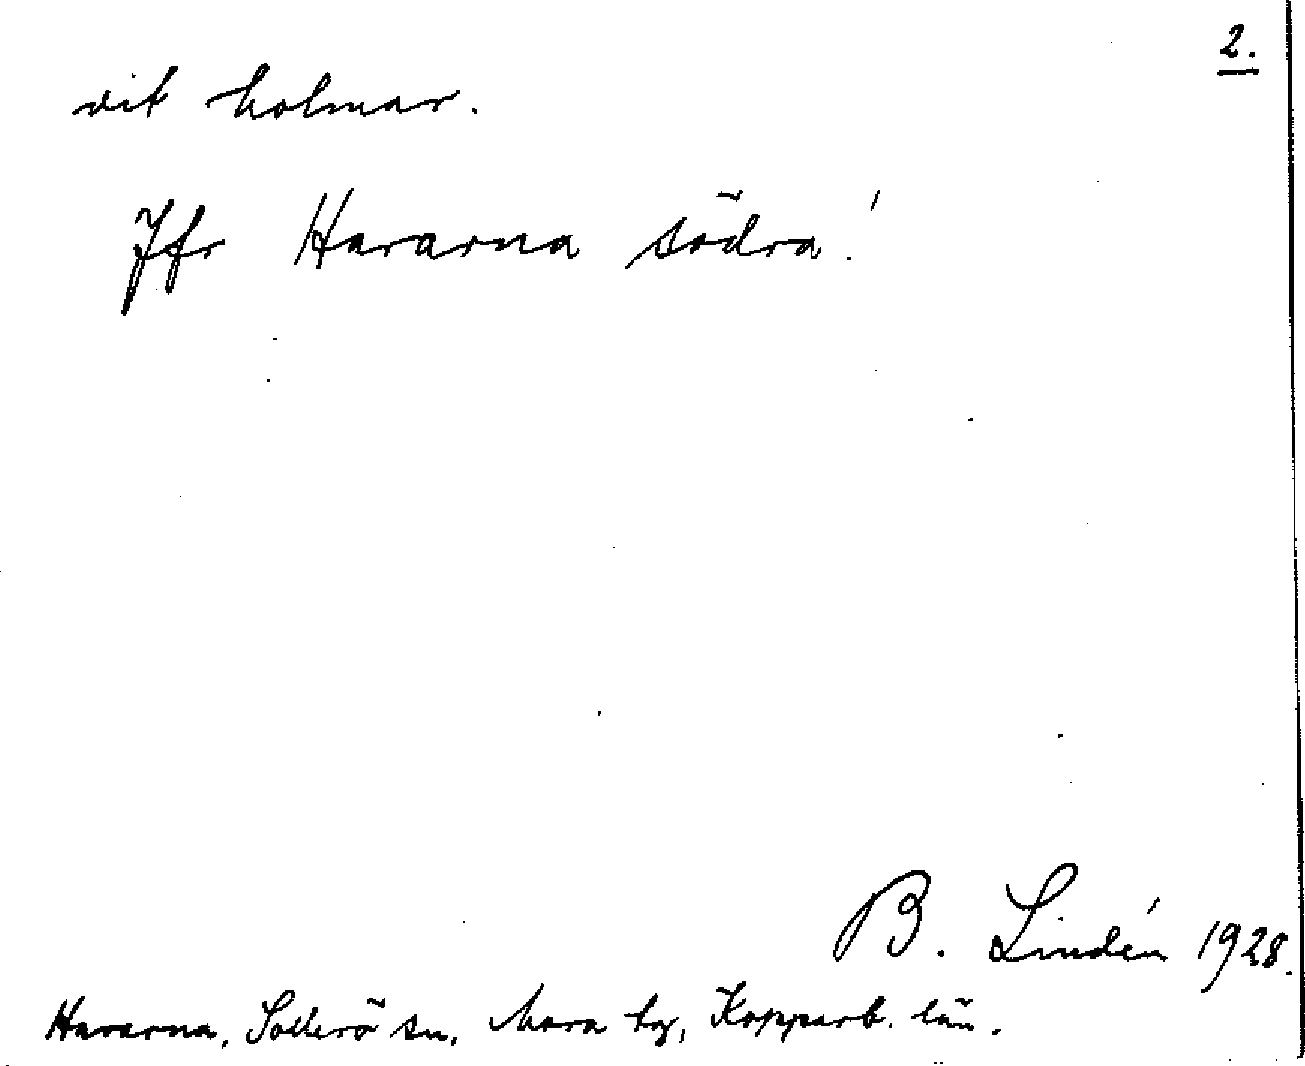 2.
vit holmar.
Jfr Hararna södra!
B. Lindén 1928.
Hararna, Sollerö sn, Mora tg, Kopparb. län.